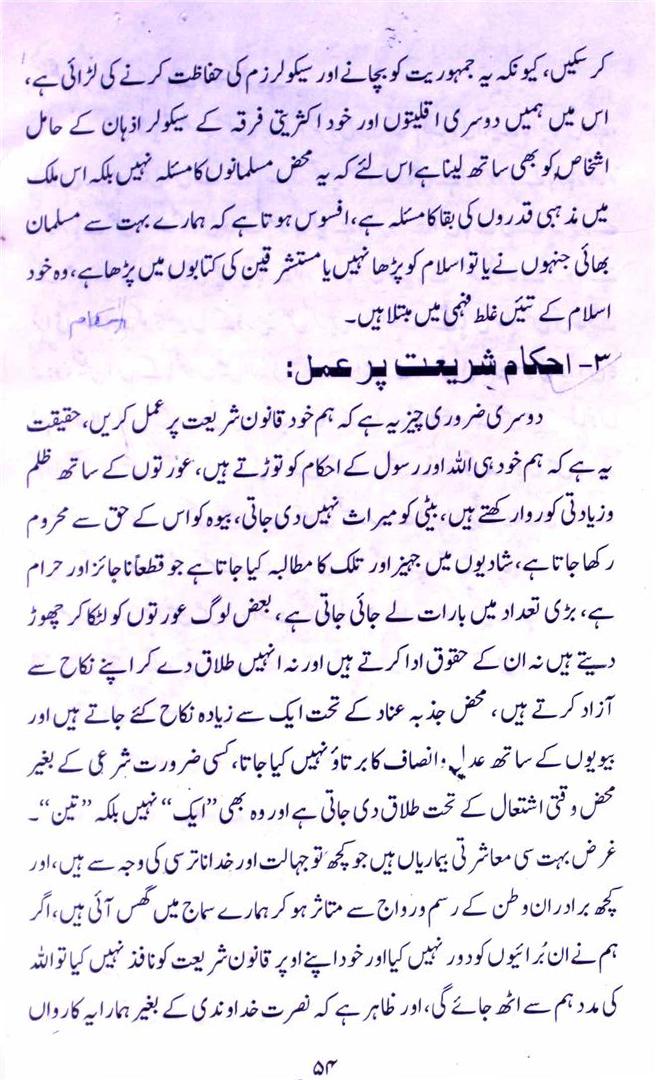 کر سکیں، کیونکہ یہ جمہوریت کو بچانے اور سیکولرزم کی حفاظت کرنے کی لڑائی ہے،
اس میں ہمیں دوسری اقلیتوں اور خود اکثریتی فرقہ کے سیکولر اذہان کے حامل
اشخاص کو بھی ساتھ لینا ہے اس لئے کہ یہ محض مسلمانوں کا مسئلہ نہیں بلکہ اس ملک
میں مذہبی قدروں کی بقا کا مسئلہ ہے، افسوس ہوتا ہے کہ ہمارے بہت سے مسلمان
بھائی جنہوں نے یا تو اسلام کو پڑھا نہیں یا مستشرقین کی کتابوں میں پڑھا ہے، وہ خود
اسلام کے تئیں غلط فہمی میں مبتلا ہیں۔
۳- احکام شریعت پر عمل:
دوسری ضروری چیز یہ ہے کہ ہم خود قانون شریعت پر عمل کریں، حقیقت
یہ ہے کہ ہم خود ہی اللہ اور رسول کے احکام کو توڑتے ہیں، عورتوں کے ساتھ ظلم
وزیادتی کو روا رکھتے ہیں، بیٹی کو میراث نہیں دی جاتی، بیوہ کو اس کے حق سے محروم
رکھا جاتا ہے، شادیوں میں جہیز اور تلک کا مطالبہ کیا جاتا ہے جو قطعاً ناجائز اور حرام
ہے، بڑی تعداد میں بارات لے جائی جاتی ہے، بعض لوگ عورتوں کو لٹکا کر چھوڑ
دیتے ہیں نہ ان کے حقوق ادا کرتے ہیں اور نہ انہیں طلاق دے کر اپنے نکاح سے
آزاد کرتے ہیں، محض جذبہ عناد کے تحت ایک سے زیادہ نکاح کئے جاتے ہیں اور
بیویوں کے ساتھ عدل و انصاف کا برتاؤ نہیں کیا جاتا، کسی ضرورت شرعی کے بغیر
محض وقتی اشتعال کے تحت طلاق دی جاتی ہے اور وہ بھی ”ایک“ نہیں بلکہ ”تین“۔
غرض بہت سی معاشرتی بیماریاں ہیں جو کچھ تو جہالت اور خدا ناترسی کی وجہ سے ہیں، اور
کچھ برادران وطن کے رسم و رواج سے متاثر ہو کر ہمارے سماج میں گھس آئی ہیں، اگر
ہم نے ان بُرائیوں کو دور نہیں کیا اور خود اپنے اوپر قانون شریعت کو نافذ نہیں کیا تو اللہ
کی مدد ہم سے اٹھ جائے گی، اور ظاہر ہے کہ نصرت خداوندی کے بغیر ہمارا یہ کارواں
۵۴